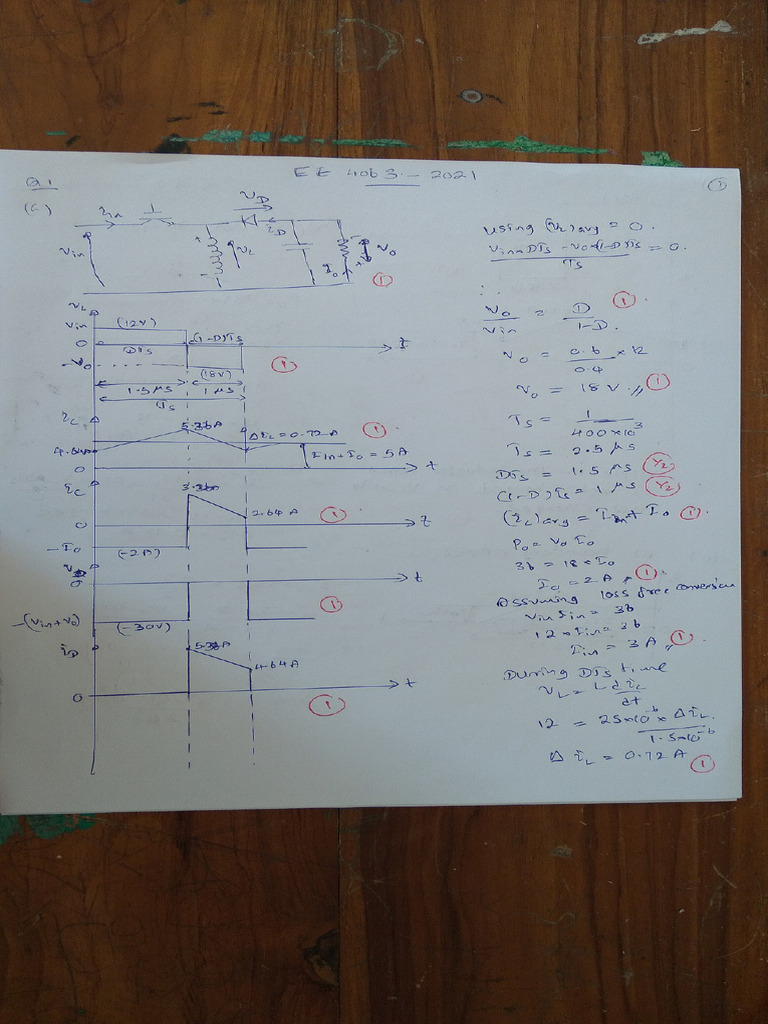 EE 4063 - 2021
①
Q1
(c)
iin
vD
iD
vin
vL
Io
vo
①
vL
vin
(12V)
0
DTs
(1-D)Ts
t
-Vo
(18V)
①
1.5 μs
1 μs
Ts
iL
5.36A
ΔiL = 0.72 A
①
4.64A
Iin + Io = 5A
0
t
ic
3.36A
2.64 A
①
0
t
-Io
(-2A)
0
t
-(vin+vo)
(-30V)
①
iD
5.36A
4.64 A
0
t
①
using (vL)avg = 0.
vin DTs - vo (1-D)Ts = 0.
Ts
∴
vo = D ①
vin 1-D.
vo = 0.6 × 12
0.4
vo = 18 V ①
Ts = 1
400×10³
Ts = 2.5 μs
DTs = 1.5 μs ½
(1-D)Ts = 1 μs ½
(iL)avg = Iin + Io ①
Po = Vo Io
36 = 18 × Io
Io = 2 A ①
Assuming loss free conversion
vin Iin = 36
12 × Iin = 36
Iin = 3 A ①
During DTs time
vL = L diL
dt
12 = 25×10⁻⁶ × ΔiL
1.5×10⁻⁶
Δ iL = 0.72 A ①